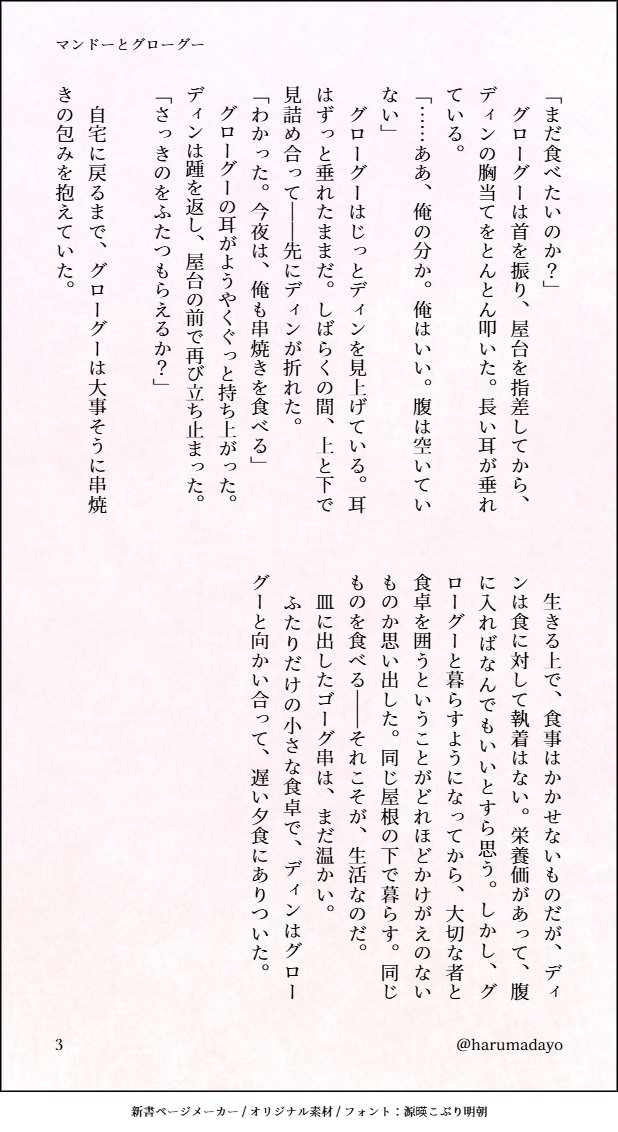 マンドーとグローグー
「まだ食べたいのか？」
　グローグーは首を振り、屋台を指差してから、
ディンの胸当てをとんとん叩いた。長い耳が垂れ
ている。
「……ああ、俺の分か。俺はいい。腹は空いてい
ない」
　グローグーはじっとディンを見上げている。耳
はずっと垂れたままだ。しばらくの間、上と下で
見詰め合って――先にディンが折れた。
「わかった。今夜は、俺も串焼きを食べる」
　グローグーの耳がようやくぐっと持ち上がった。
ディンは踵を返し、屋台の前で再び立ち止まった。
「さっきのをふたつもらえるか？」
　自宅に戻るまで、グローグーは大事そうに串焼
きの包みを抱えていた。
　生きる上で、食事はかかせないものだが、ディ
ンは食に対して執着はない。栄養価があって、腹
に入ればなんでもいいとすら思う。しかし、グ
ローグーと暮らすようになってから、大切な者と
食卓を囲うということがどれほどかけがえのない
ものか思い出した。同じ屋根の下で暮らす。同じ
ものを食べる――それこそが、生活なのだ。
　皿に出したゴーグ串は、まだ温かい。
　ふたりだけの小さな食卓で、ディンはグロー
グーと向かい合って、遅い夕食にありついた。
3
@harumadayo
新書ページメーカー / オリジナル素材 / フォント：源暎こぶり明朝